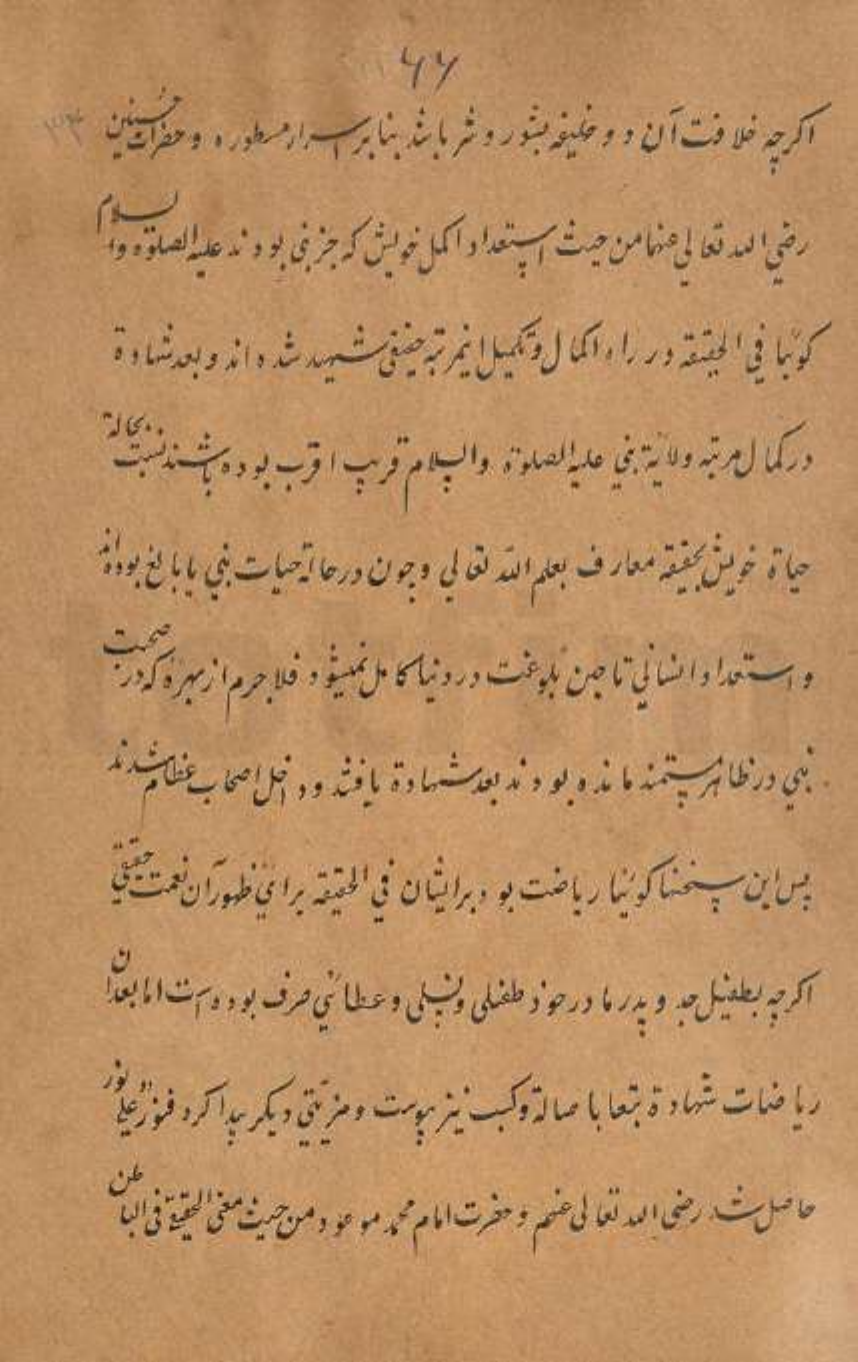 ۶۶
اکرچه خلافت آن دو خلیفه بشور و شر باشد بنابر اسرار مسطوره و حضرات حُسنین
رضي الله تعالی عنهما من حیث استعداد اکمل خویش که جز نبی بودند علیه الصلوة والسلام
کوئیا في الحقیقه در راه اکمال و تکمیل اینمرتبه حقیقی شهید شده اند و بعد شهادة
در کمال مرتبه ولایة نبي علیه الصلوة والسلام قریب اقرب بوده باشند نسبت بحالة
حیاة خویش بحقیقه معارف بعلم الله تعالی و چون در حالة حیات نبي نابالغ بوده اند
و استعداد انساني تا حین بلوغت در دنیا کامل نمیشود فلاجرم از بهرۀ که در صحبت
نبي در ظاهر مستمند مانده بودند بعد شهادة یافتند و داخل اصحاب عظام شدند
پس این سخنها کوئیا ریاضت بود بر ایشان في الحقیقه برائ ظهور آن نعمت حقیقي
اکرچه بطفیل جد و پدر ما در خود طفیلی و عطائي صرف بوده است اما بعد ان
ریاضات شهادة تبعا باصالة و کسب نیز پیوست و مزیّتي دیکر پیدا کرد فنورٌ علی نور
حاصل شد رضی الله تعالی عنهم و حضرت امام محمد موعود من حیث معنی الحقیقة فی الباطن